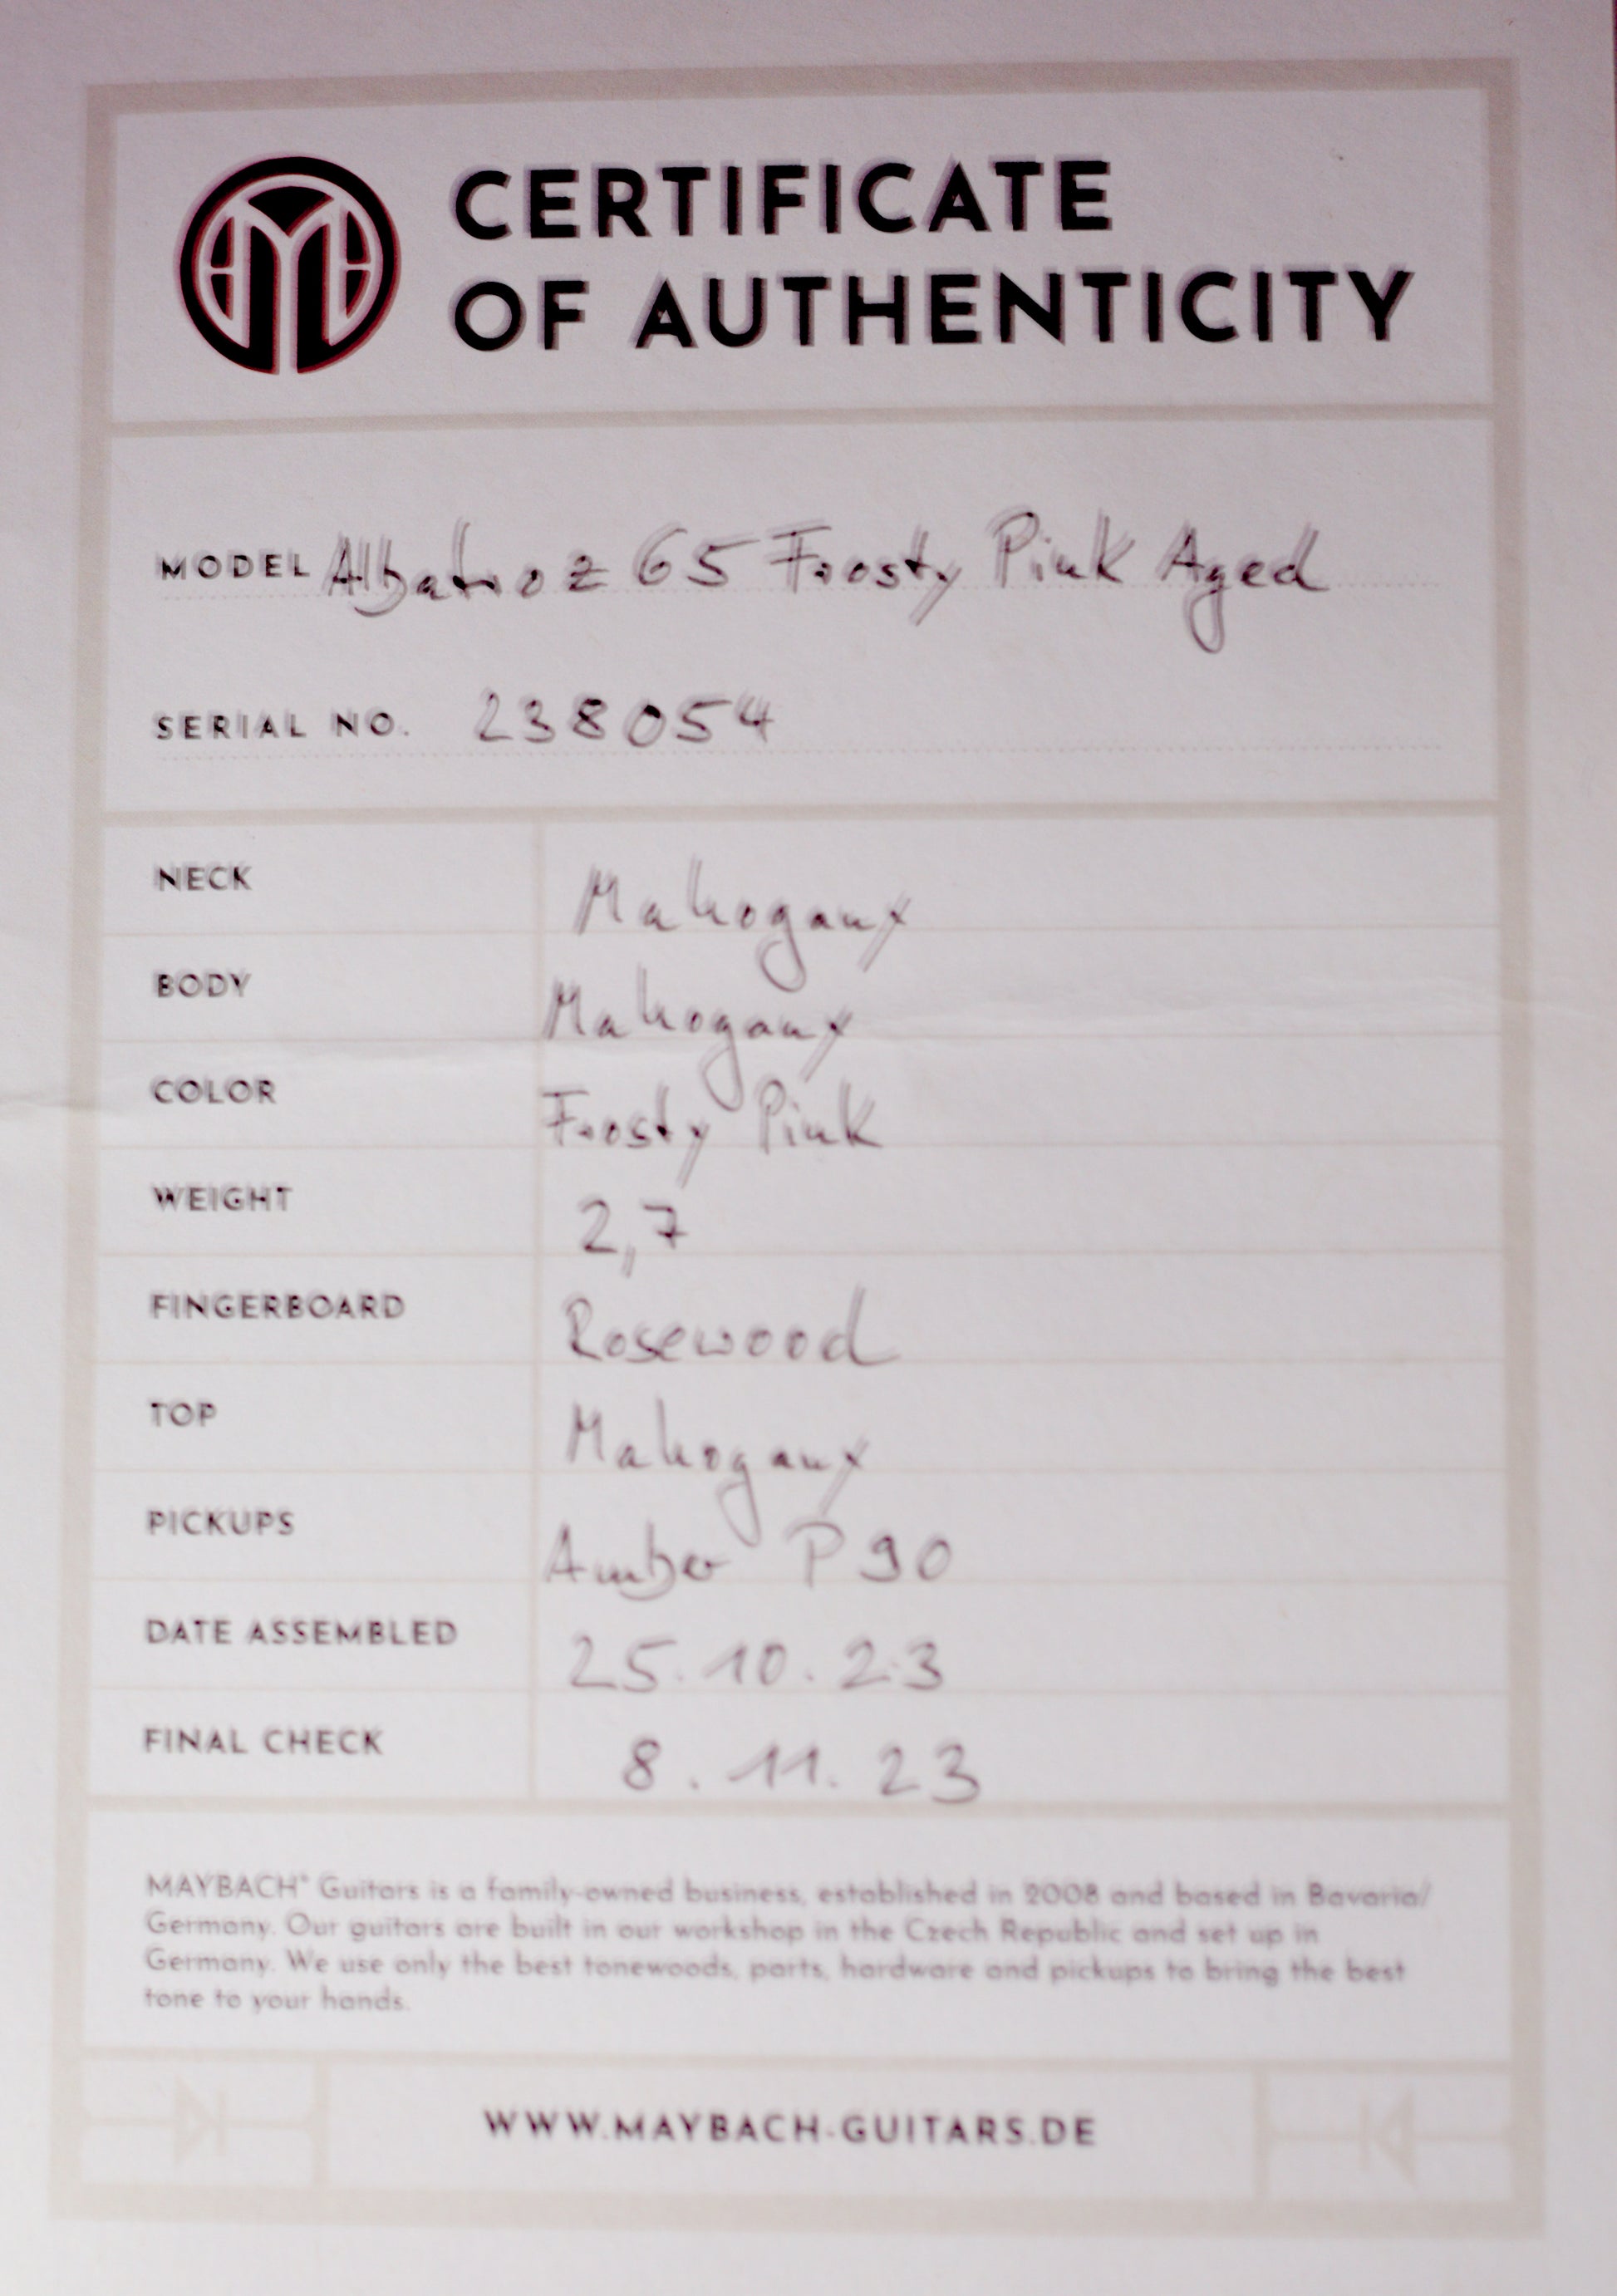 CERTIFICATE
OF AUTHENTICITY
MODEL Albatroz 65 Frosty Pink Aged
SERIAL NO. 238054
NECK Mahogany
BODY Mahogany
COLOR Frosty Pink
WEIGHT 2,7
FINGERBOARD Rosewood
TOP Mahogany
PICKUPS Amber P90
DATE ASSEMBLED 25.10.23
FINAL CHECK 8.11.23
MAYBACH® Guitars is a family-owned business, established in 2008 and based in Bavaria/
Germany. Our guitars are built in our workshop in the Czech Republic and set up in
Germany. We use only the best tonewoods, parts, hardware and pickups to bring the best
tone to your hands.
WWW.MAYBACH-GUITARS.DE